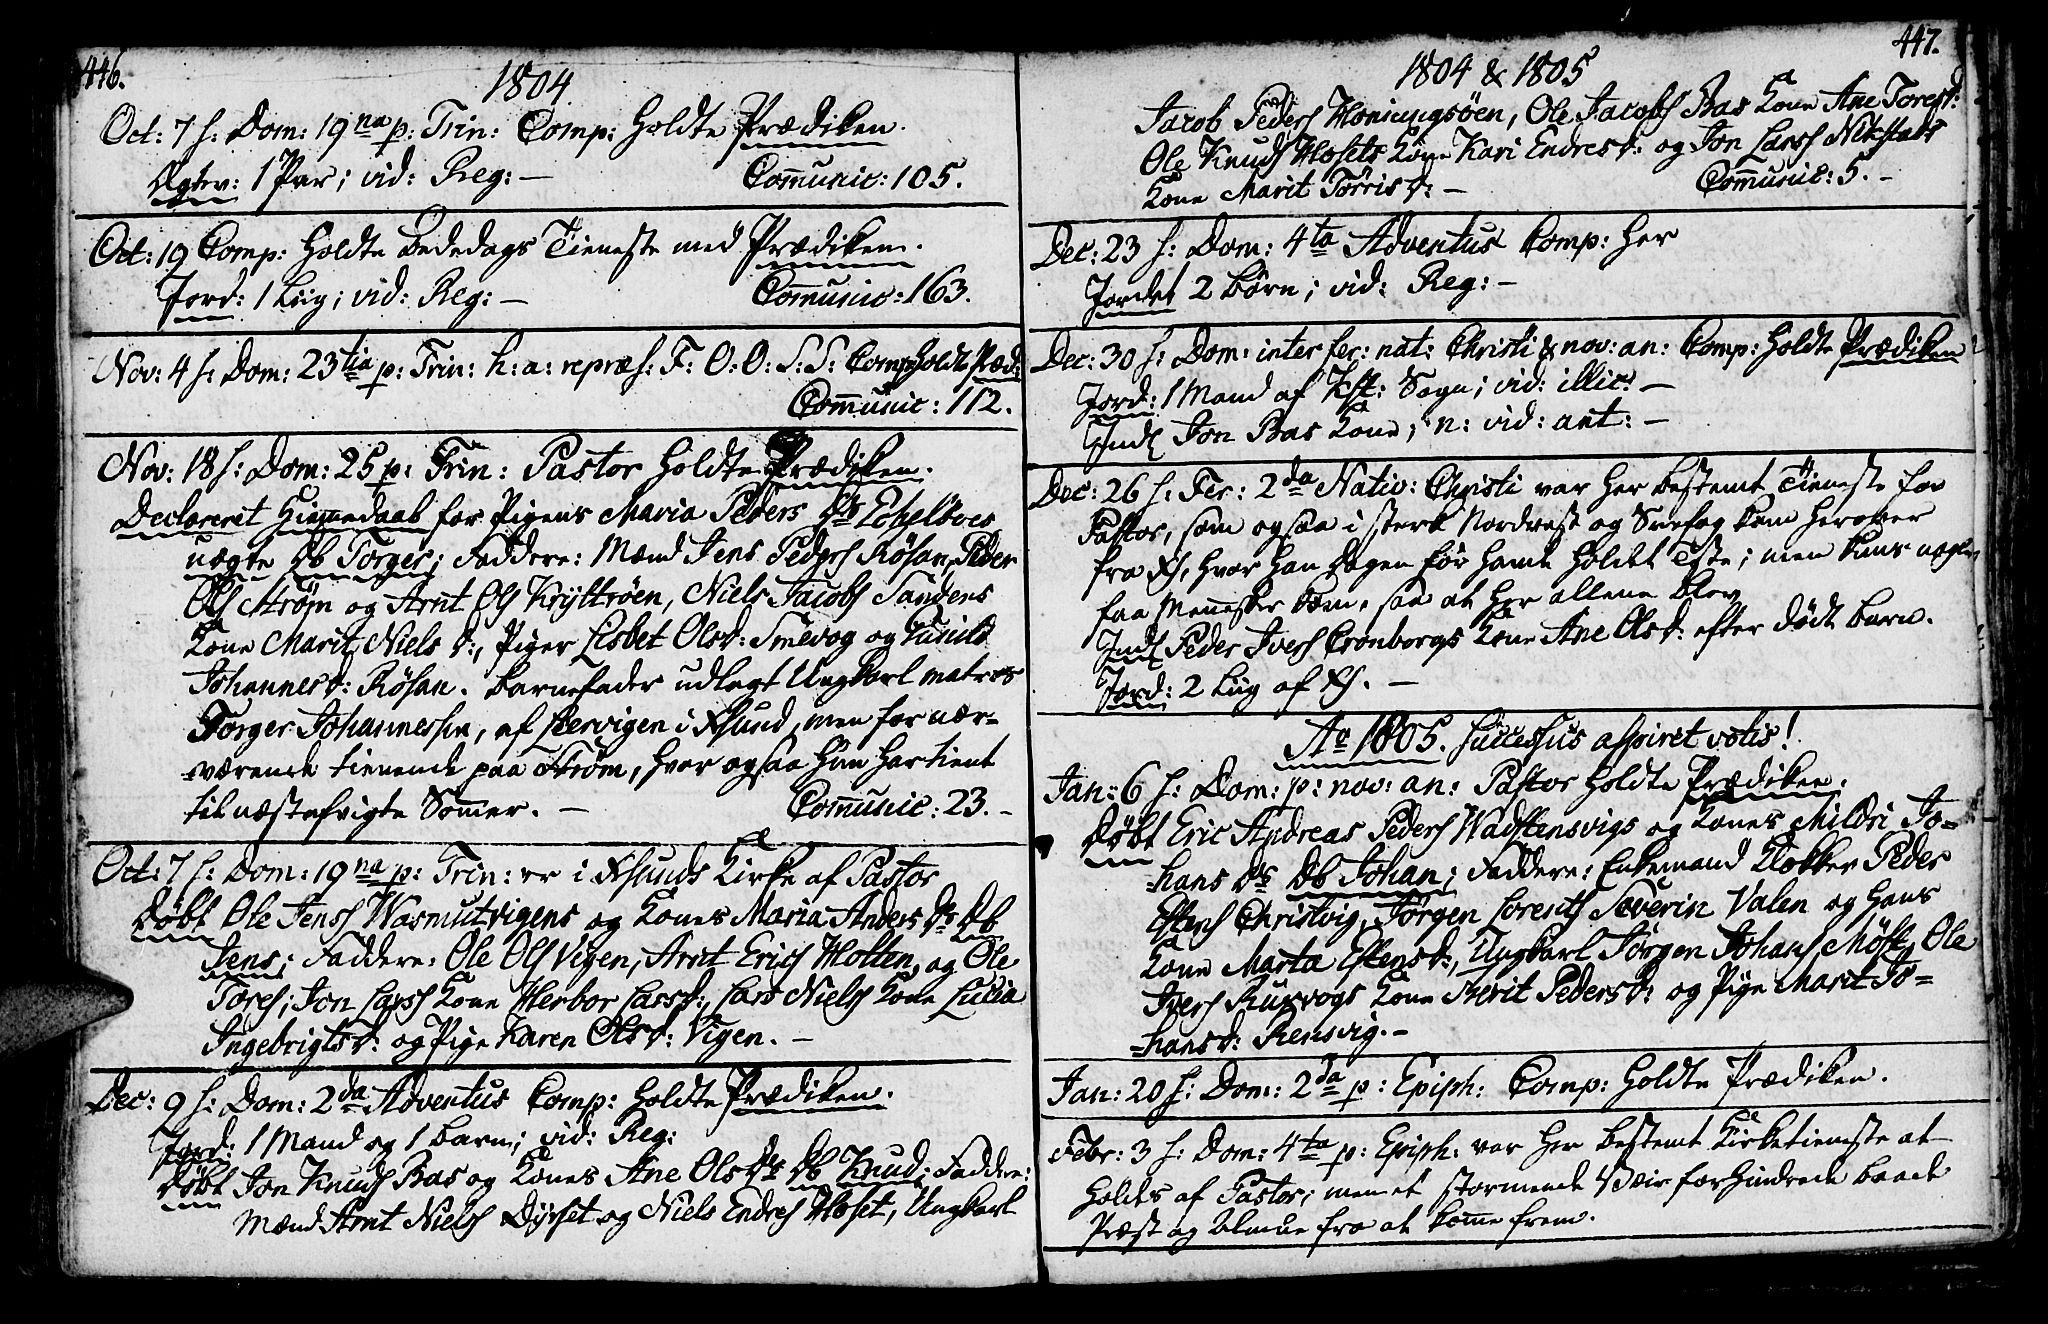 446.
1804
Oct: 7 s: Dom: 19na p: Trin: Comp: holdte Prædiken.
Egtev: 1 Par; vid: Reg: — Com̄unic: 105.
Oct: 19 Comp: holdte Bededags Tieneste med Prædiken.
Jord: 1 Liig; vid: Reg: — Com̄unic: 163.
Nov: 4 s: Dom: 23tia p: Trin: h: a: repræs: F: O: O: S: S: Comp: holdt Præd:
Com̄unic: 112.
Nov: 18 s: Dom: 25 p: Trin: Pastor holdte Prædiken.
Declareret Hiem̄edaab for Pigens Maria Peders Ds
uægte Db Torger; Faddere: Mænd Jens Peders Røsan, Peder
Ols Strøm og Arnt Ols Kryttrøen, Niels Jacobs Sandens
Kone Marit Niels d:, Piger Lisbet Olsd: Smevog og Gunild
Johannesd: Røsan. Barnefader udlagt Ungkarl
Torger Johannessen, af Leervigen i Xsund, men for nær-
værende tienende paa Strøm, hvor ogsaa hun har tient
til næstafvigte Som̄er. — Com̄unic: 23. —
Oct: 7 s: Dom: 19na p: Trin: er i Xsunds Kirke af Pastor
Døbt Ole Jens Wasmutvigens og Kones Maria Anders Ds Db
Jens; Faddere: Ole Ols Vigen, Arnt Erics Hollen, og Ole
Tores; Jon Larss Kone Herbor Larsd:, Lars Niels Kone Lucia
Ingebrigtsd: og Pige Karen Olsd: Vigen. —
Dec: 9 s: Dom: 2da Adventus Comp: holdte Prædiken.
Jord: 1 Mand og 1 Barn; vid: Reg:
Døbt Jon Knuds Bas og Kones Ane Ols Ds Db Knud; Faddere:
Mænd Arnt Niels Dyrset og Niels Endres Hoset, Ungkarl
447.
1804 & 1805
Jacob Peders Honingsøen, Ole Jacobs Bas Kone Ane Toresd:
Ole Knuds Hosets Kone Kari Endresd: og Jon Larss Nekstads
Kone Marit Torrisd: — Com̄unic: 5. —
Dec: 23 s: Dom: 4ta Adventus Comp: her
Jordet 2 Børn; vid: Reg: —
Dec: 30 s: Dom: inter fer: nat: Christi & nov: an: Comp: holdte Prædiken
Jord: 1 Mand af Kst: Sogn; vid: illic: —
Indl Jon Bas Kone; n: vid: ant: —
Dec: 26 s: Fer: 2da Nativ: Christi var her bestemt Tieneste for
Pastor, som ogsaa i sterk Nordvest og Sneefog kom herover
fra Xs, hvor han dagen før havde holdet Tste; men kuns nogle
faa Mennesker kom, saa at her allene blev
Indl Peder Ivers Cronborgs Kone Ane Olsd: efter dødt Barn.
Jord: 2 Liig af Xs. —
Ao 1805. Successus aspiret votis!
Jan: 6 s: Dom: p: nov: an: Pastor holdte Prædiken.
Døbt Eric Andreas Peders Wadstensvigs og Kones Mildri Jo-
-hans Ds Db Johan; Faddere: Enkemand Klokker Peder
Estens Christvig, Jørgen Lorents Severin Valen og Hans
Kone Marta Estensd:, Ungkarl Jørgen Johans Møst, Ole
Ivers Ruxvogs Kone Berit Pedersd: og Pige Marit Jo-
-hansd: Rensvig. —
Jan: 20 s: Dom: 2da p: Epiph: Comp: holdte Prædiken.
Febr: 3 s: Dom: 4ta p: Epiph: var her bestemt Kirketieneste at
holdes af Pastor; men et stormende Veir forhindrede baade
Præst og Almue fra at kom̄e frem.